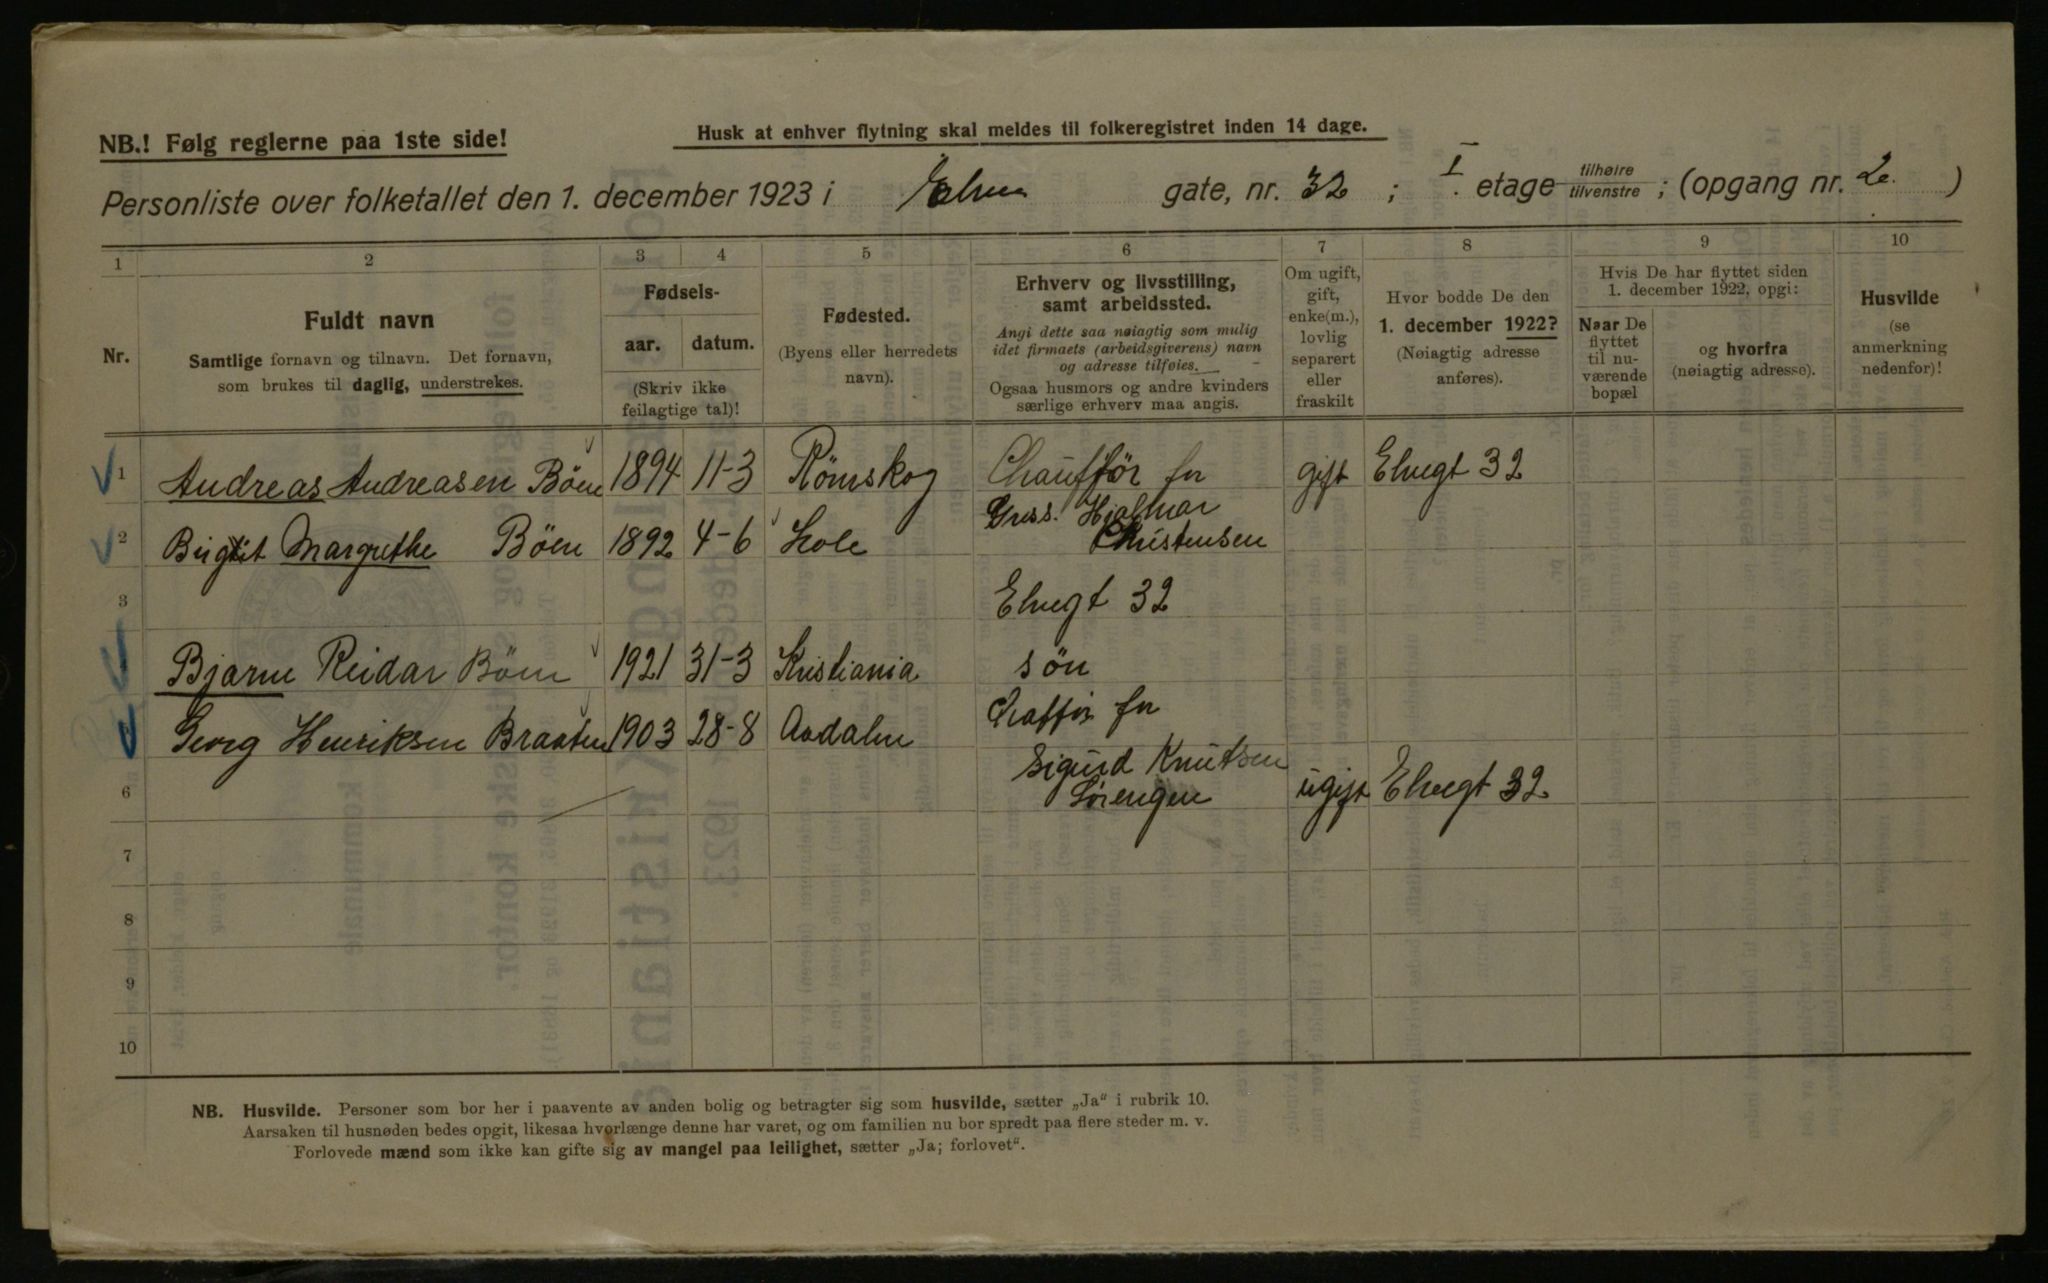 NB.! Følg reglerne paa 1ste side!
Husk at enhver flytning skal meldes til folkeregistret inden 14 dage.
Personliste over folketallet den 1. december 1923 i Elve gate, nr. 32 ; I. etage tilhøire tilvenstre ; (opgang nr. 2. )
1 2 3 4 5 6 7 8 9 10
Nr.
Fuldt navn
Samtlige fornavn og tilnavn. Det fornavn,
som brukes til daglig, understrekes.
Fødsels-
aar. datum.
(Skriv ikke
feilagtige tal)!
Fødested.
(Byens eller herredets
navn).
Erhverv og livsstilling,
samt arbeidssted.
Angi dette saa nøiagtig som mulig
idet firmaets (arbeidsgiverens) navn
og adresse tilføies.
Ogsaa husmors og andre kvinders
særlige erhverv maa angis.
Om ugift,
gift,
enke(m.),
lovlig
separert
eller
fraskilt
Hvor bodde De den
1. december 1922?
(Nøiagtig adresse
anføres).
Hvis De har flyttet siden
1. december 1922, opgi:
Naar De
flyttet
til nu-
værende
bopæl
og hvorfra
(nøiagtig adresse).
Husvilde
(se
anmerkning
nedenfor)!
1 Andreas Andreasen Böen 1894 11-3 Römskog Chauffør for gift Elvegt 32
Gross. Hjalmar
2 Birgit Margrethe Böen 1892 4-6 Hole Christensen
3 Elvegt 32
Bjarne Reidar Böen 1921 31-3 Kristiania sön
Georg Henriksen Braaten 1903 28-8 Aadalen Chaffør for
Sigurd Knutsen
6 Sørengen ugift Elvegt 32
7
8
9
10
NB. Husvilde. Personer som bor her i paavente av anden bolig og betragter sig som husvilde, sætter „Ja" i rubrik 10.
Aarsaken til husnøden bedes opgit, likesaa hvorlænge denne har varet, og om familien nu bor spredt paa flere steder m. v.
Forlovede mænd som ikke kan gifte sig av mangel paa leilighet, sætter „Ja; forlovet".